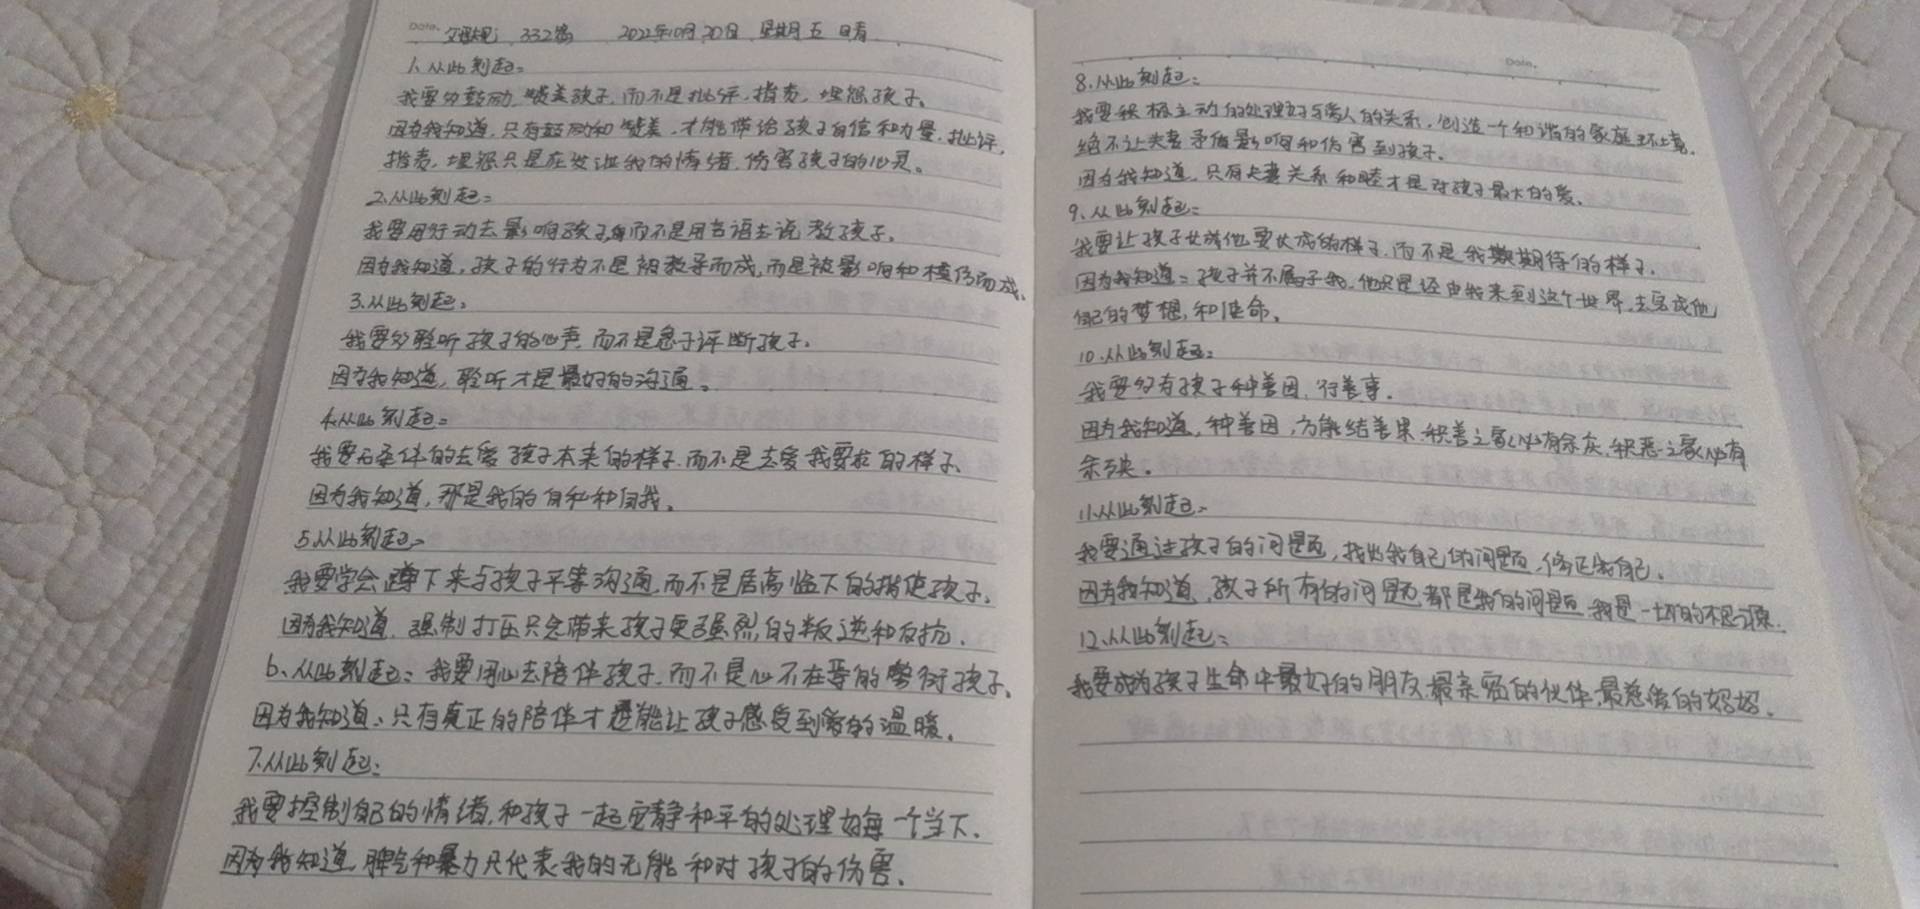 Date. 父母规 332篇 2022年10月20日 星期五 晴
1、从此刻起:
我要多鼓励,赞美孩子,而不是批评,指责,埋怨孩子。
因为我知道,只有鼓励和赞美,才能带给孩子自信和力量,批评,
指责,埋怨只是在发泄我的情绪,伤害孩子的心灵。
2、从此刻起:
我要用行动去影响孩子,而不是用言语去说教孩子。
因为我知道,孩子的行为不是被教导而成,而是被影响和模仿而成。
3、从此刻起:
我要多聆听孩子的心声,而不是急于评断孩子。
因为我知道,聆听才是最好的沟通。
4、从此刻起:
我要无条件的去爱孩子本来的样子,而不是去爱我要求的样子、
因为我知道,那是我的自私和自我。
5、从此刻起:
我要学会蹲下来与孩子平等沟通,而不是居高临下的指使孩子。
因为我知道,强制打压只会带来孩子更强烈的叛逆和反抗.
6、从此刻起:我要用心去陪伴孩子,而不是心不在焉的敷衍孩子。
因为我知道、只有真正的陪伴才能让孩子感受到爱的温暖。
7、从此刻起:
我要控制自己的情绪,和孩子一起安静和平的处理好每一个当下.
因为我知道,脾气和暴力只代表我的无能和对孩子的伤害。
Date.
8、从此刻起:
我要积极主动的处理好与爱人的关系,创造一个和谐的家庭环境.
绝不让夫妻矛盾影响和伤害到孩子.
因为我知道,只有夫妻关系和睦才是对孩子最大的爱。
9、从此刻起:
我要让孩子长成他要长成的样子,而不是我期待的样子.
因为我知道:孩子并不属于我,他只是经由我来到这个世界,去完成他
自己的梦想,和使命。
10、从此刻起:
我要多为孩子种善因,行善事.
因为我知道,种善因,方能结善果,积善之家必有余庆,积恶之家必有
余殃。
11、从此刻起:
我要通过孩子的问题,找出我自己的问题,修正我自己.
因为我知道,孩子所有的问题都是我的问题,我是一切的根源.
12、从此刻起:
我要成为孩子生命中最好的朋友,最亲密的伙伴,最慈爱的妈妈.